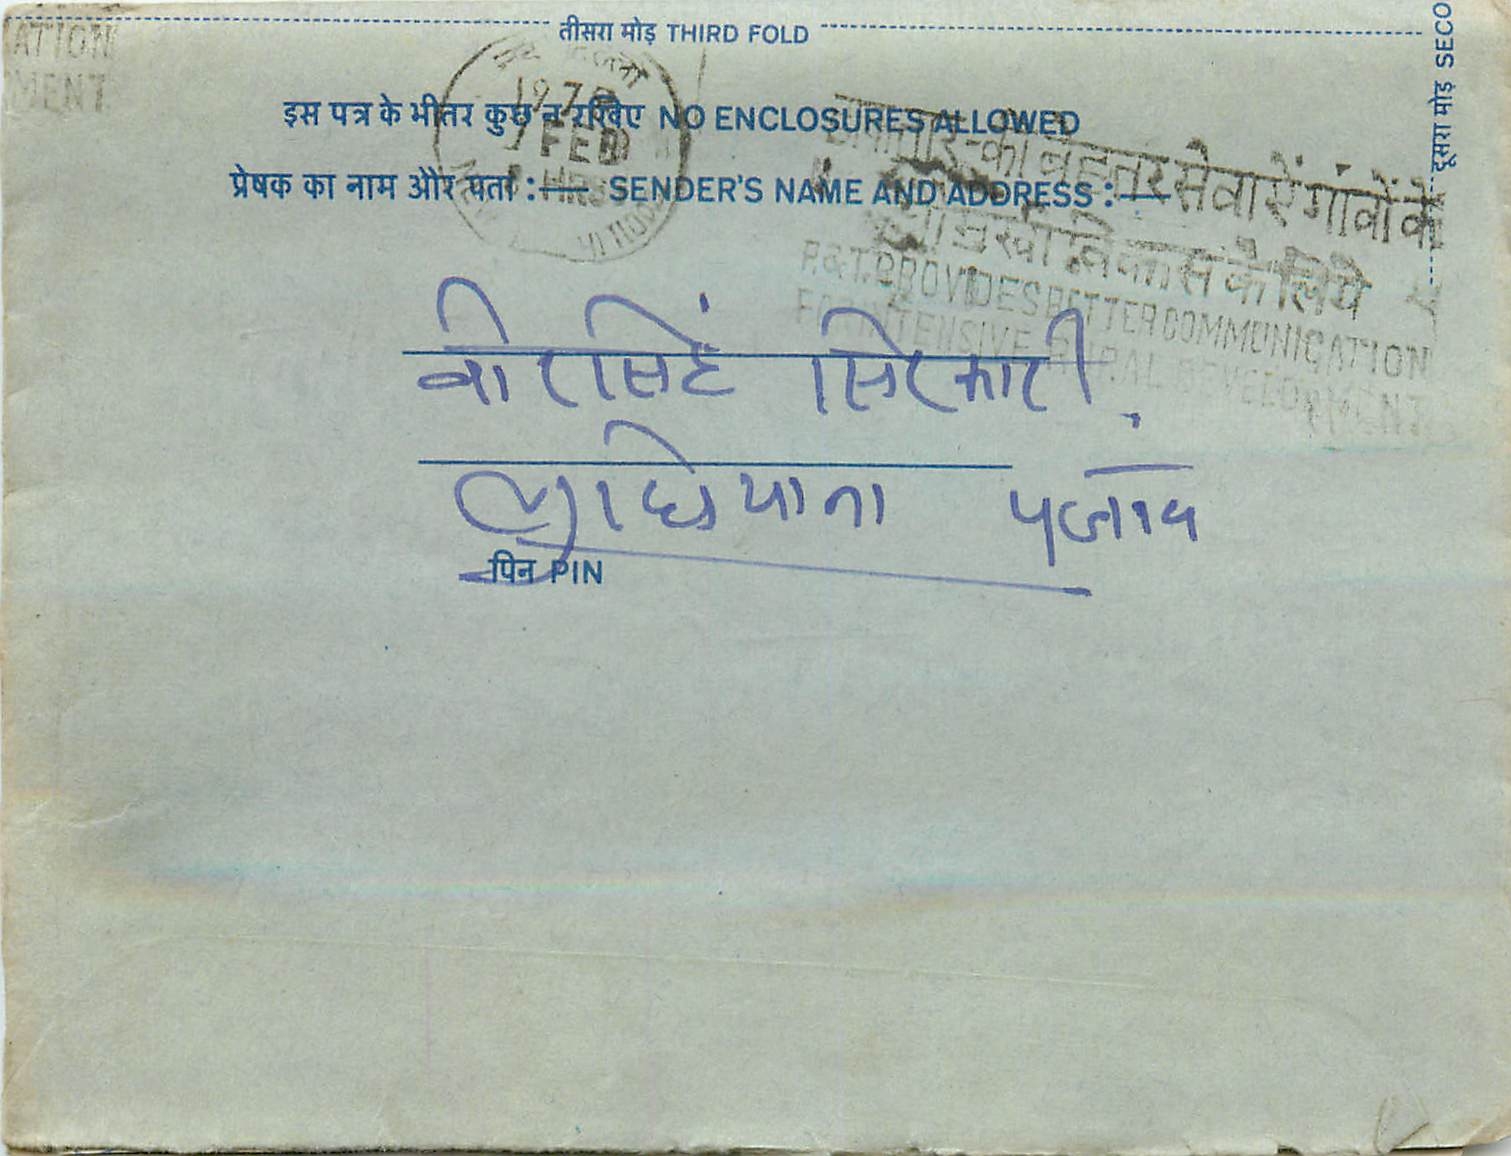 ATION
MENT
तीसरा मोड़ THIRD FOLD
दूसरा मोड़ SECO
इस पत्र के भीतर कुछ न रखिए NO ENCLOSURES ALLOWED
प्रेषक का नाम और पता :— SENDER'S NAME AND ADDRESS :—
FEB
HRS
बेहतर सेवाऐं गांवों के
विकास के लिये
P.&T. PROVIDES BETTER COMMUNICATION
FOR INTENSIVE RURAL DEVELOPMENT
वीरसिहं
लुधियाना पंजाब
पिन PIN